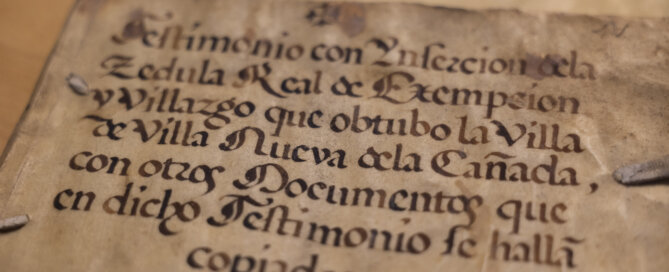 Testimonio con Ynsercion dela
Zedula Real de Exempcion
y Villazgo que obtubo la Villa
de Villa Nueva dela Cañada,
con otros Documentos que
en dicho Testimonio se hallã
copiad